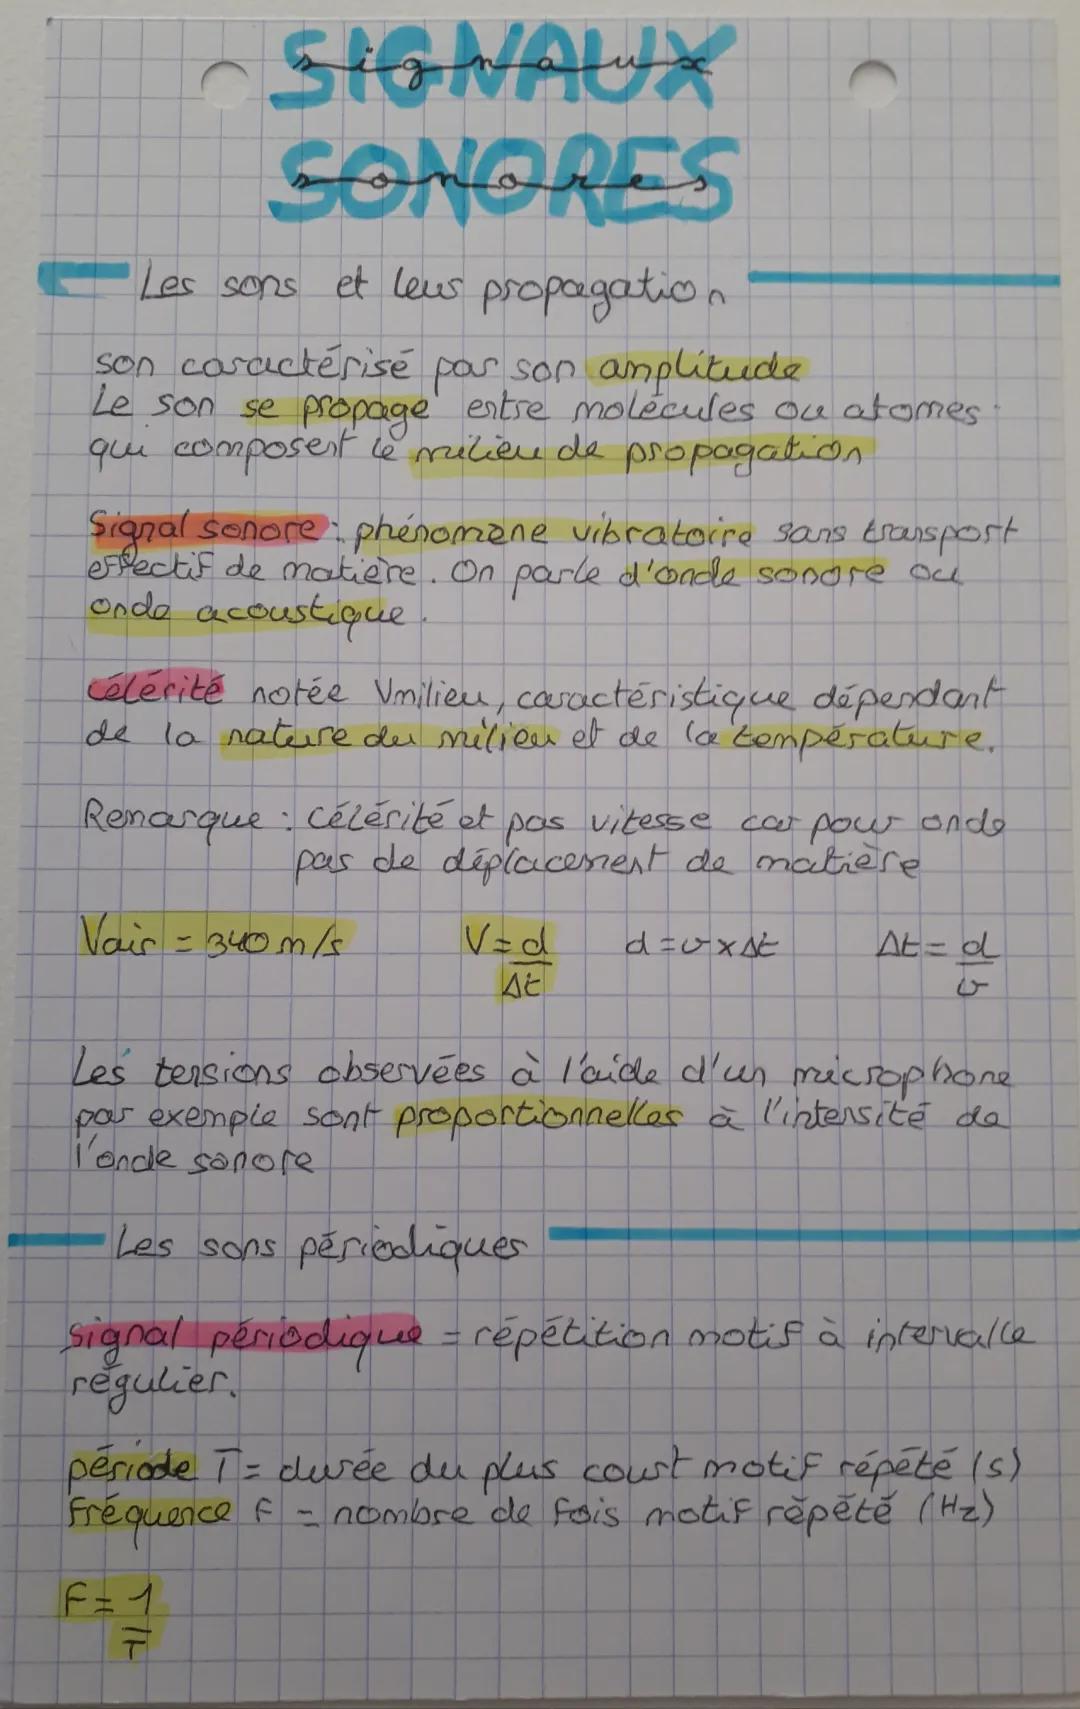 SIGNAUX
signaux
SONORES
sonores
Les sons et leurs propagation
son caractérisé par son amplitude
Le son se propage entre molécules ou atomes
qui composent le milieu de propagation
Signal sonore : phénomène vibratoire sans transport
effectif de matière. On parle d'onde sonore ou
onde acoustique.
célérité notée Vmilieu, caractéristique dépendant
de la nature du milieu et de la température.
Remarque : célérité et pas vitesse car pour onde
pas de déplacement de matière
Vair = 340 m/s V = d/Δt d = v x Δt Δt = d/v
Les tensions observées à l'aide d'un microphone
par exemple sont proportionnelles à l'intensité de
l'onde sonore
Les sons périodiques
Signal périodique = répétition motif à intervalle
régulier.
période T = durée du plus court motif répété (s)
Fréquence F = nombre de fois motif répété (Hz)
F = 1/T